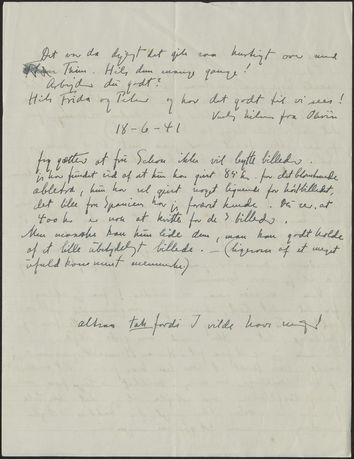 Det var da dygtigt det gik saa hurtigt over med
Trim. Hils dem mange gange!
Arbejder du godt?
Hils Frida og Peter og hav det godt til vi ses!
hilsen fra
18-6-41
Jeg gætter at fru ikke vil bytte billeder.
Vi har fundet ud af at hun har givet 85 kr. for det blomstrende
abletræ, hun har vel givet noget lignende for
det lille fra Spanien har vi foræret hende. Det er at
400 kr er nok at for de 3 billeder.
Men maaske kan hun lide dem, man kan godt holde
af et lille ubetydeligt billede. — (ligesom af et meget
menneske)
altsaa tak fordi I vilde have mig!